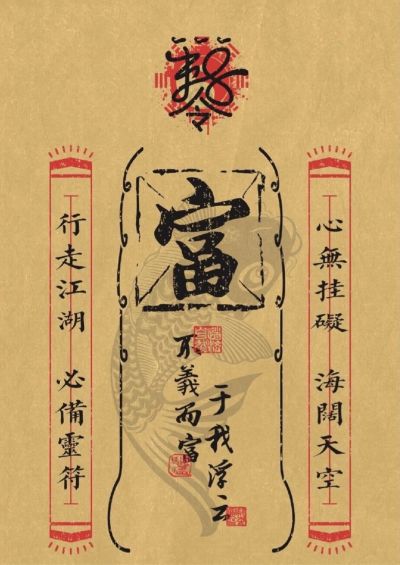 令
心無挂礙 海闊天空
富
不義而富
于我浮云
行走江湖 必備靈符